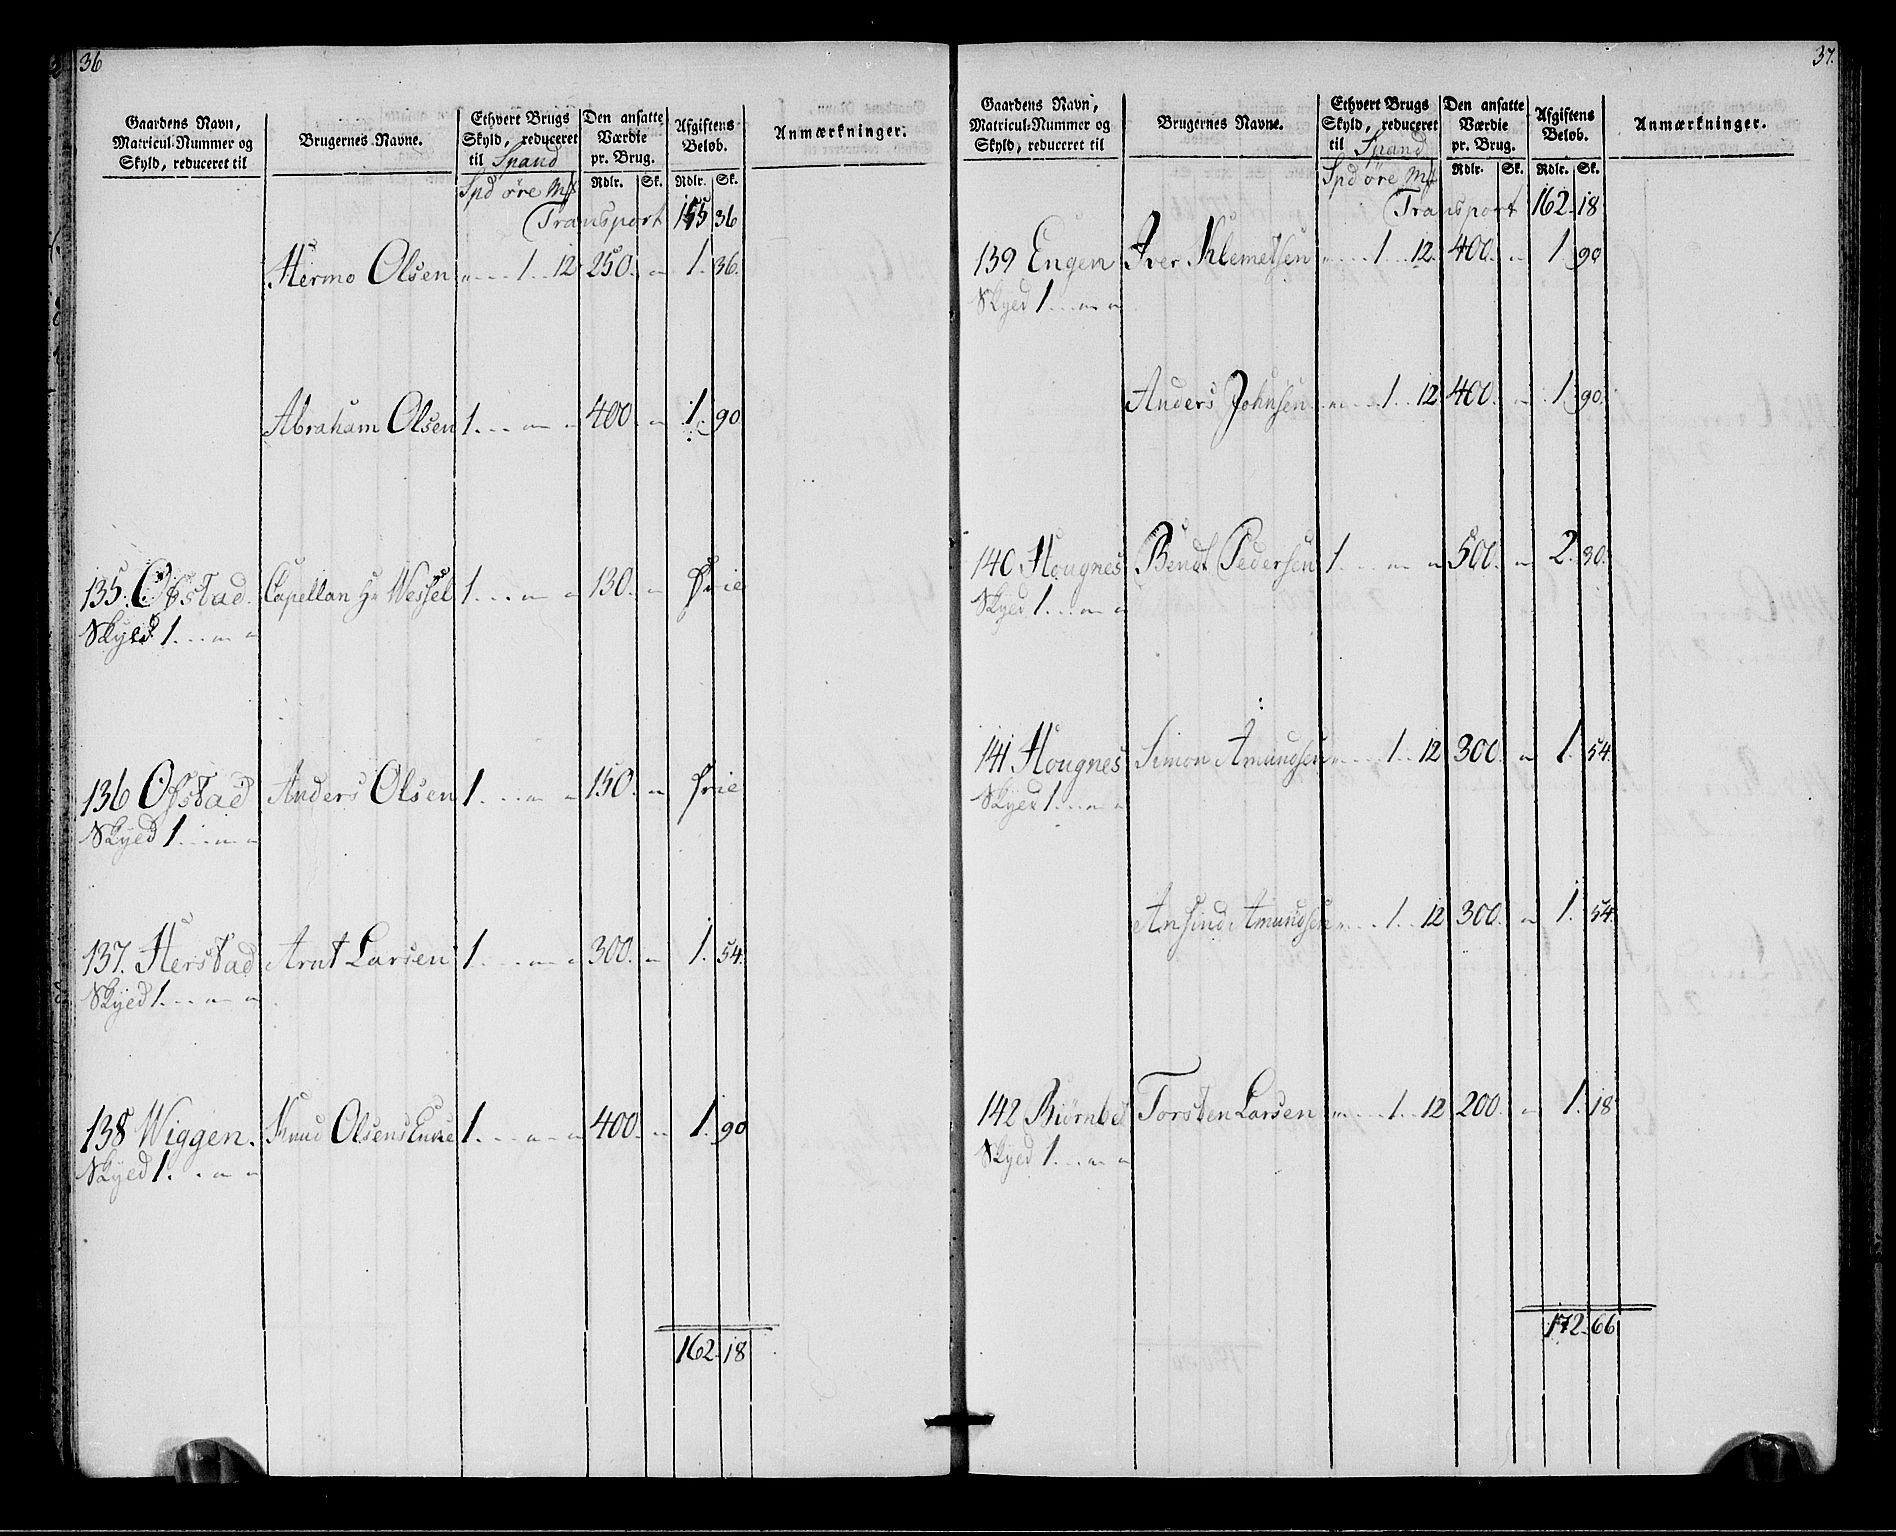 36
Gaardens Navn, Matricul-Nummer og Skyld, reduceret til
Brugernes Navne.
Ethvert Brugs Skyld, reduceret til Spand
Den ansatte Værdie pr. Brug.
Afgiftens Beløb.
Anmærkninger.
Spd øre Mk Rdlr. Sk. Rdlr. Sk.
Transport 155 36
Hermo Olsen " 1 12 250. " 1. 36.
Abraham Olsen 1. " " 400. " 1. 90.
135. Ofstad. Capellan Hr Wessel 1. " " 130. " Frie
Skyld 1. " "
136 Ofstad Anders Olsen 1. " " 150. " Frie
Skyld 1. " "
137. Herstad Arnt Larsen 1. " " 300. " 1. 54.
Skyld 1. " "
138 Wiggen. Knud Olsens Enke 1. " " 400. " 1. 90
Skyld 1. " "
162. 18
37.
Gaardens Navn, Matricul-Nummer og Skyld, reduceret til
Brugernes Navne.
Ethvert Brugs Skyld, reduceret til Spand
Den ansatte Værdie pr. Brug.
Afgiftens Beløb.
Anmærkninger.
Spd øre Mk Rdlr. Sk. Rdlr. Sk.
Transport 162. 18
139 Engen Iver Klemetsen " 1 12. 400. " 1. 90
Skyld 1. " "
Anders Johnsen " 1. 12. 400. " 1. 90.
140 Hougnes Bendt Pedersen 1. " " 500. " 2. 30.
Skyld 1. " "
141 Hougnes Simon Amundsen " 1. 12 300. " 1. 54.
Skyld 1. " "
Ansind Amundsen " 1. 12 300. " 1. 54.
142 Torsten Larsen " 1. 12 200. " 1. 18
Skyld 1. " "
172. 66